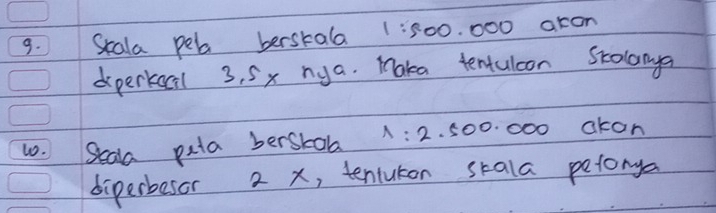 9. Skala peta berskala 1:500.000 akan
diperkecil 3,5x nya. Maka tentukan Skalanya
10. Skala peta berskala 1:2.500.000 akan
diperbesar 2 x, tentukan skala petanya